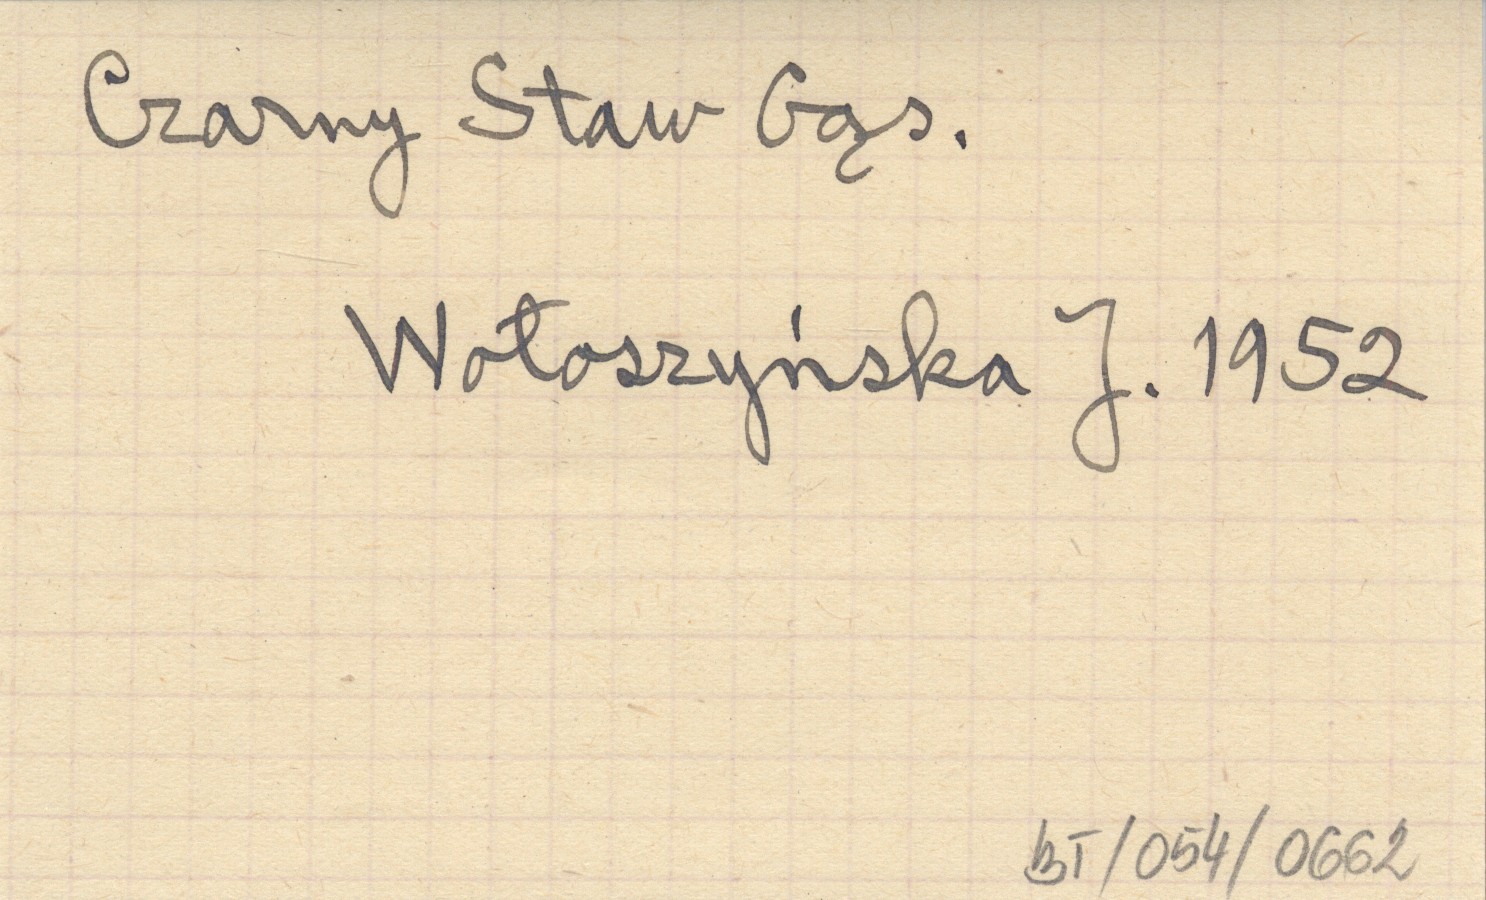 Czarny Staw Gąs.
Wołoszyńska J. 1952
BT/054/0662